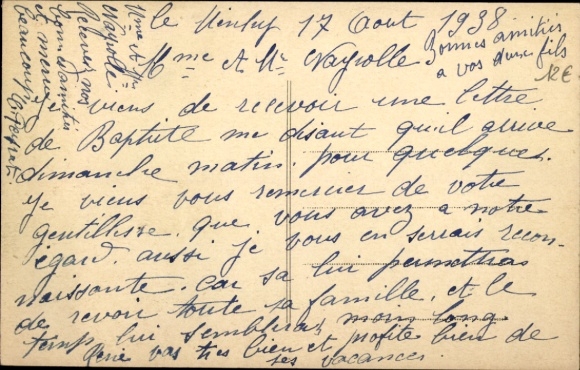 le Neuluf 17 Aout 1938
Mme et Mr Nayrolle
Bonnes amitiés
a vos deux fils
12€
je viens de recevoir une lettre
de Baptiste me disant qu'il arrive
dimanche matin. pour quelques.
je viens vous remercier de votre
gentillesse. que vous avez a notre
égard. aussi je vous en serrais recon-
naissante. car sa lui permettra
de revoir toute sa famille. et le
temp lui semblerat moins long.
Génie vas tres bien et profite bien de
ses vacances.
Mme et Mr
Nayrolle
Recevez nos
bons amitiés
et merci
beaucoup